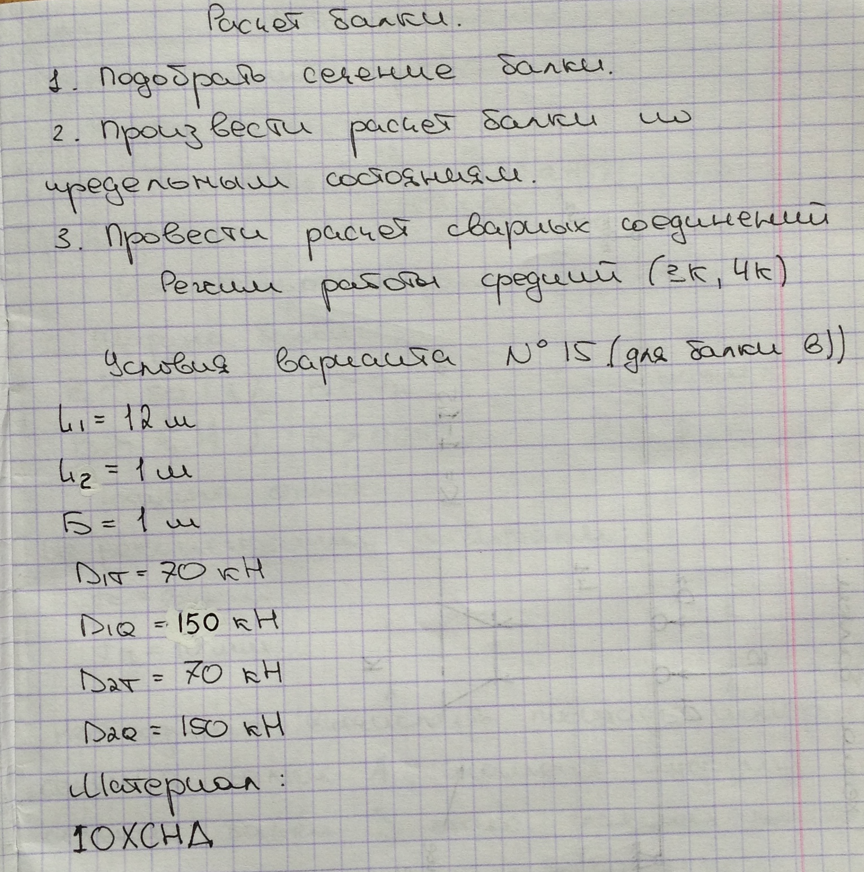 Расчет балки.
1. Подобрать сечение балки.
2. Произвести расчет балки по
предельным состояниям.
3. Провести расчет сварных соединений
Режим работы средний (3К, 4К)
Условия варианта № 15 (для балки в))
L1 = 12 м
L2 = 1 м
Б = 1 м
D1T = 70 кН
D1Q = 150 кН
D2T = 70 кН
D2Q = 150 кН
Материал :
10ХСНД